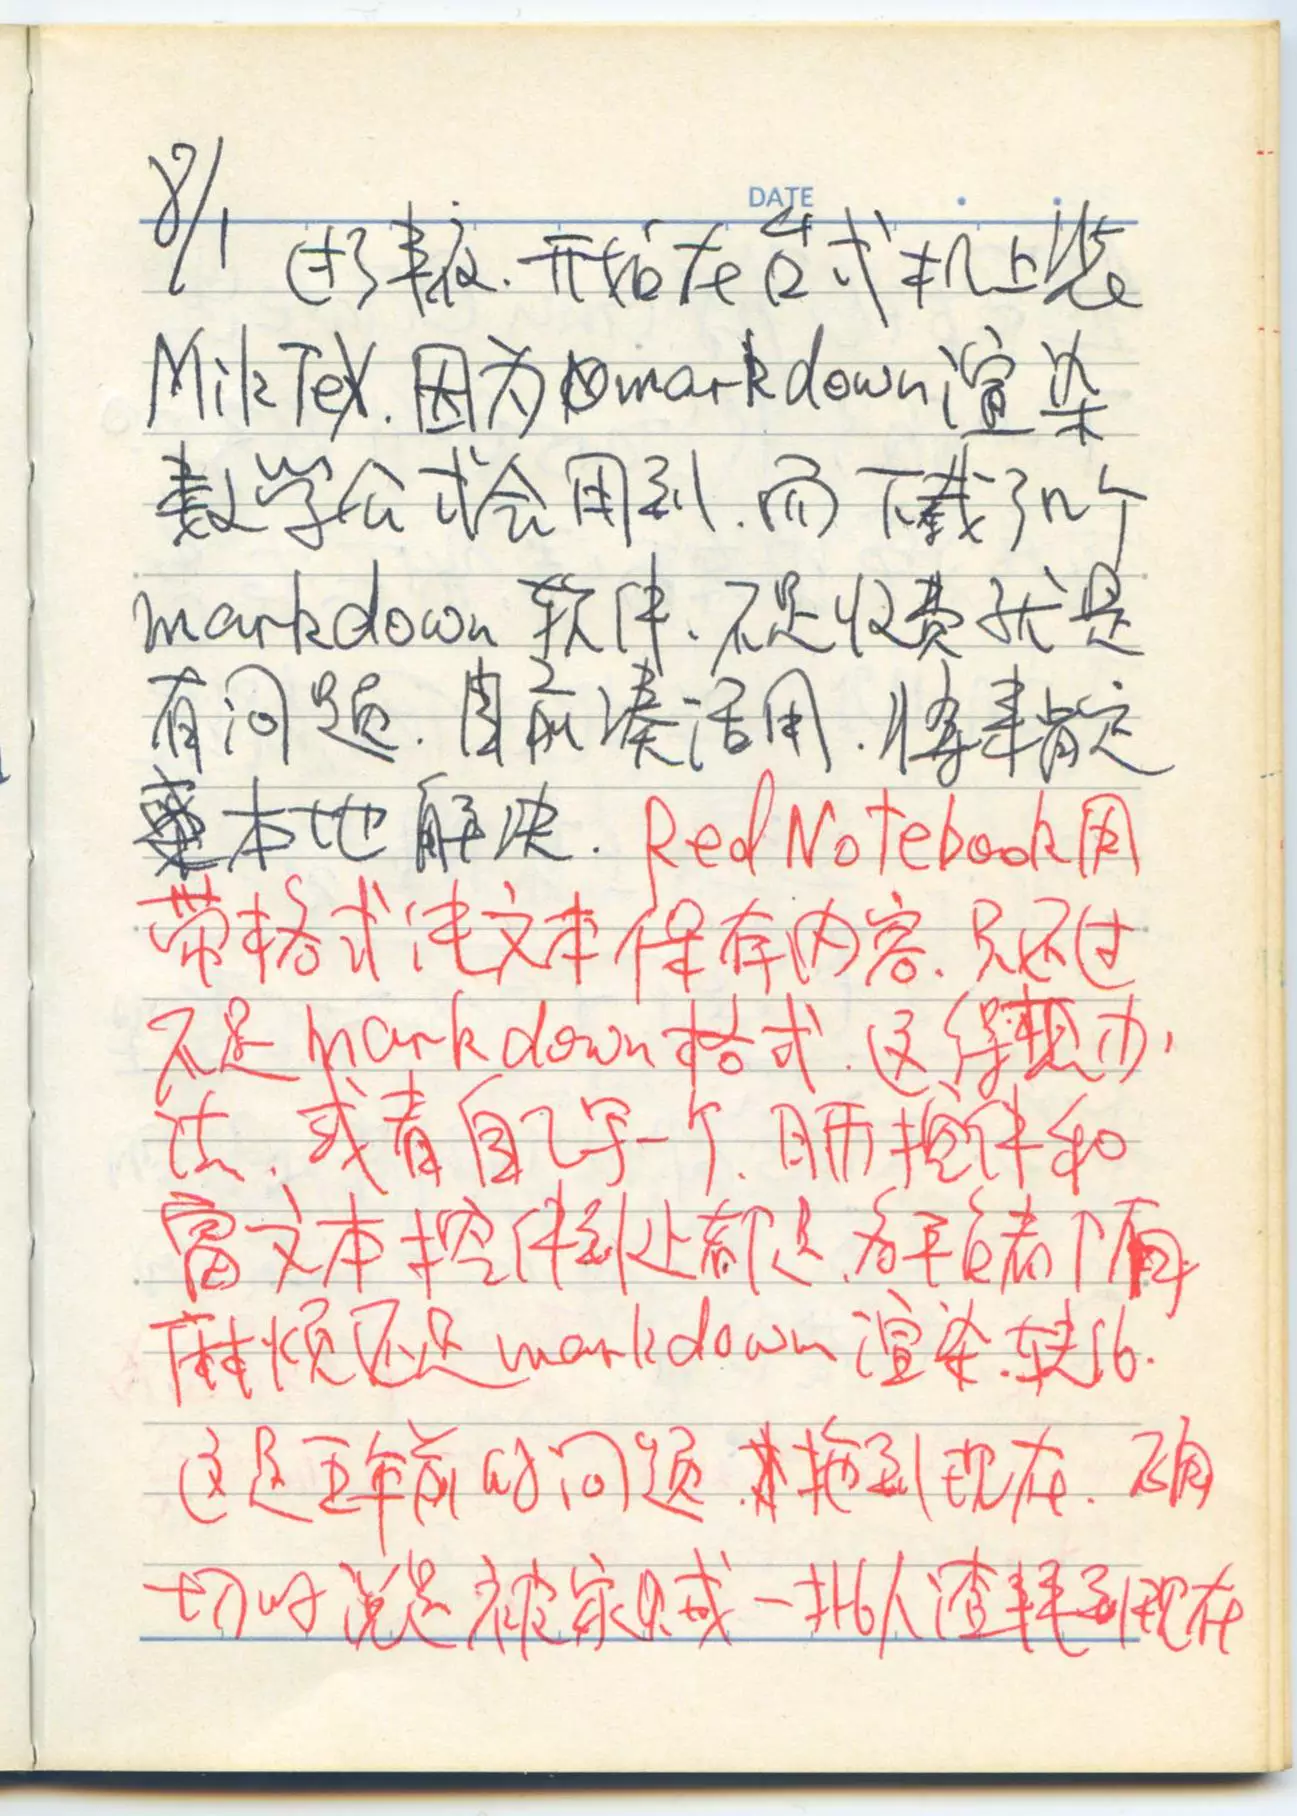 DATE
8/1 过了半夜.开始在台式机上装
MikTeX.因为markdown渲染
数学公式会用到.而下载了几个
markdown软件、不是收费就是
有问题.目前凑活用.将来肯定
本地解决.RedNotebook用
带格式纯文本保存内容.只不过
不是markdown格式.这得想办
法、或者自己写一个.日历控件和
富文本控件到处都是.
麻烦还是markdown渲染.转化.
这是五年前的问题.拖到现在. 正确
切的说是被家贼或一批人渣耗到现在